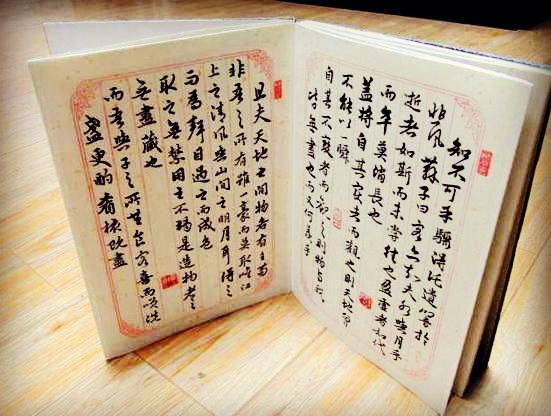 知不可乎驟得托遺響於
悲風蘇子曰客亦知夫水與月乎
逝者如斯而未嘗往也盈虛者如代
而卒莫消長也
蓋將自其變者而觀也則天地曾
不能以一瞬
自其不變者而觀之則物與我
皆無盡也而又何羨乎
且夫天地之間物各有主苟
非吾之所有雖一毫而莫取惟江
上之清風與山間之明月耳得之
而為聲目遇之而成色
取之無禁用之不竭是造物者之
無盡藏也
而吾與子之所共食客喜而笑洗
盞更酌肴核既盡